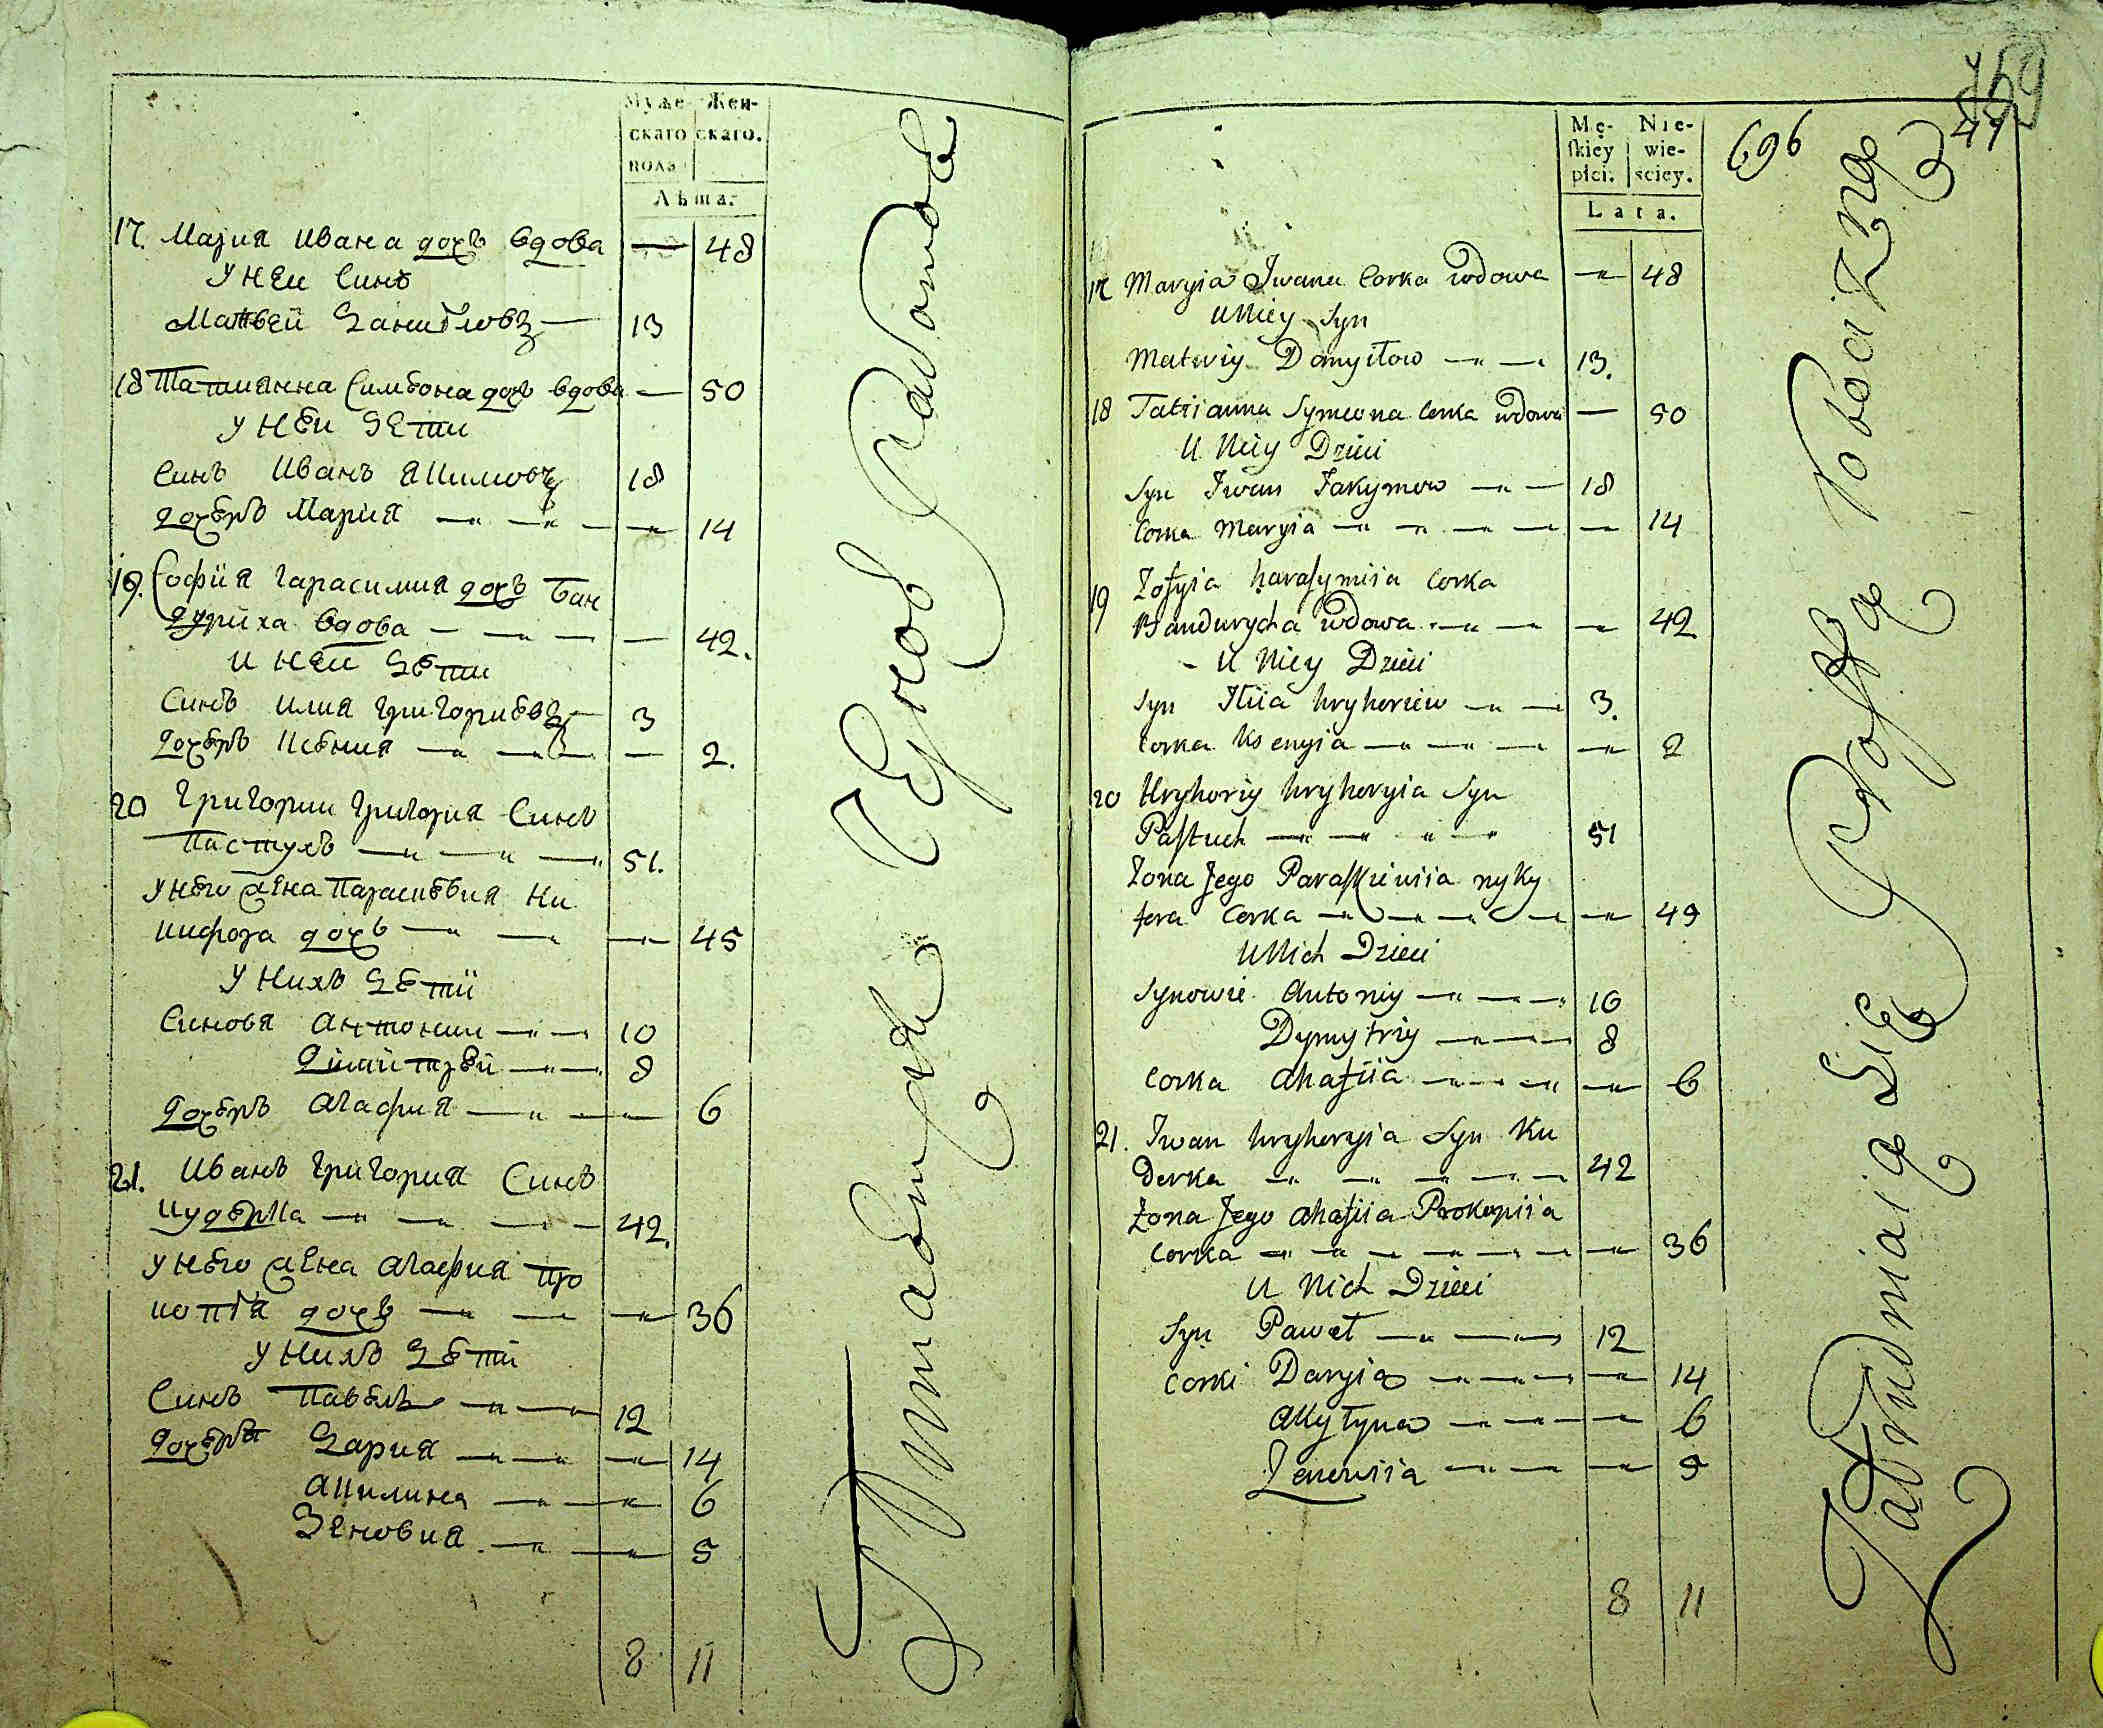 Муже- Жен-
скаго скаго.
полъ
Лѣта.
17. Мария Ивана дохъ вдова — 48
У неи Синъ
Матвей Даниловъ — 13
18 Татианна Симеона дохъ вдова — 50
У неи Дети
Синъ Иванъ Акимовъ 18
дохеръ Мария — 14
19. Софiя Гарасимия дохъ Бан
дуриха вдова — 42.
И неи Дети
Синъ Илия Григориевъ — 3
дохеръ Ксения — 2.
20 Григории Григория Синъ
Пастухъ — 51.
У него жена Параскевия Ни
кифора дохъ — 45
У нихъ Детиi
Синовя Антонии — 10
Димитрей — 8
дохеръ Агафия — 6
21. Иванъ Григория Синъ
Кудерка — 42.
У него жена Агафия Про
копия дохъ — 36
У нихъ Дети
Синъ Павелъ — 12
дохеря Дария — 14
Акилина — 6
Зеновия — 5
8 11
696
47
Mę- Nie-
ſkiey wie-
płci. sciey.
Lata.
17 Maryia Iwana Corka wdowa — 48
U Niey Syn
Matwiy Danyłow — 13.
18 Tatianna Symeona Corka wdowa — 50
U Niey Dzieci
Syn Iwan Jakymow — 18
Corka Maryia — 14
19 Zofyia haraſymiia Corka
Bandurycha wdowa — 42
- U Niey Dzieci
Syn Illiia hryhoriew — 3.
Corka Ksenyia — 2
20 Hryhoriy hryhoryia Syn
Paſtuch — 51
Żona Jego Paraſkiewiia nyky
fora Corka — 49
U Nich Dzieci
Synowie Antoniy — 10
Dymytriy — 8
Corka Ahafiia — 6
21. Iwan hryhoryia Syn Ku
derka — 42
Żona Jego Ahafiia Prokopiia
Corka — 36
U Nich Dzieci
Syn Paweł — 12
Corki Daryia — 14
Akylyna — 6
Zenowiia — 5
8 11